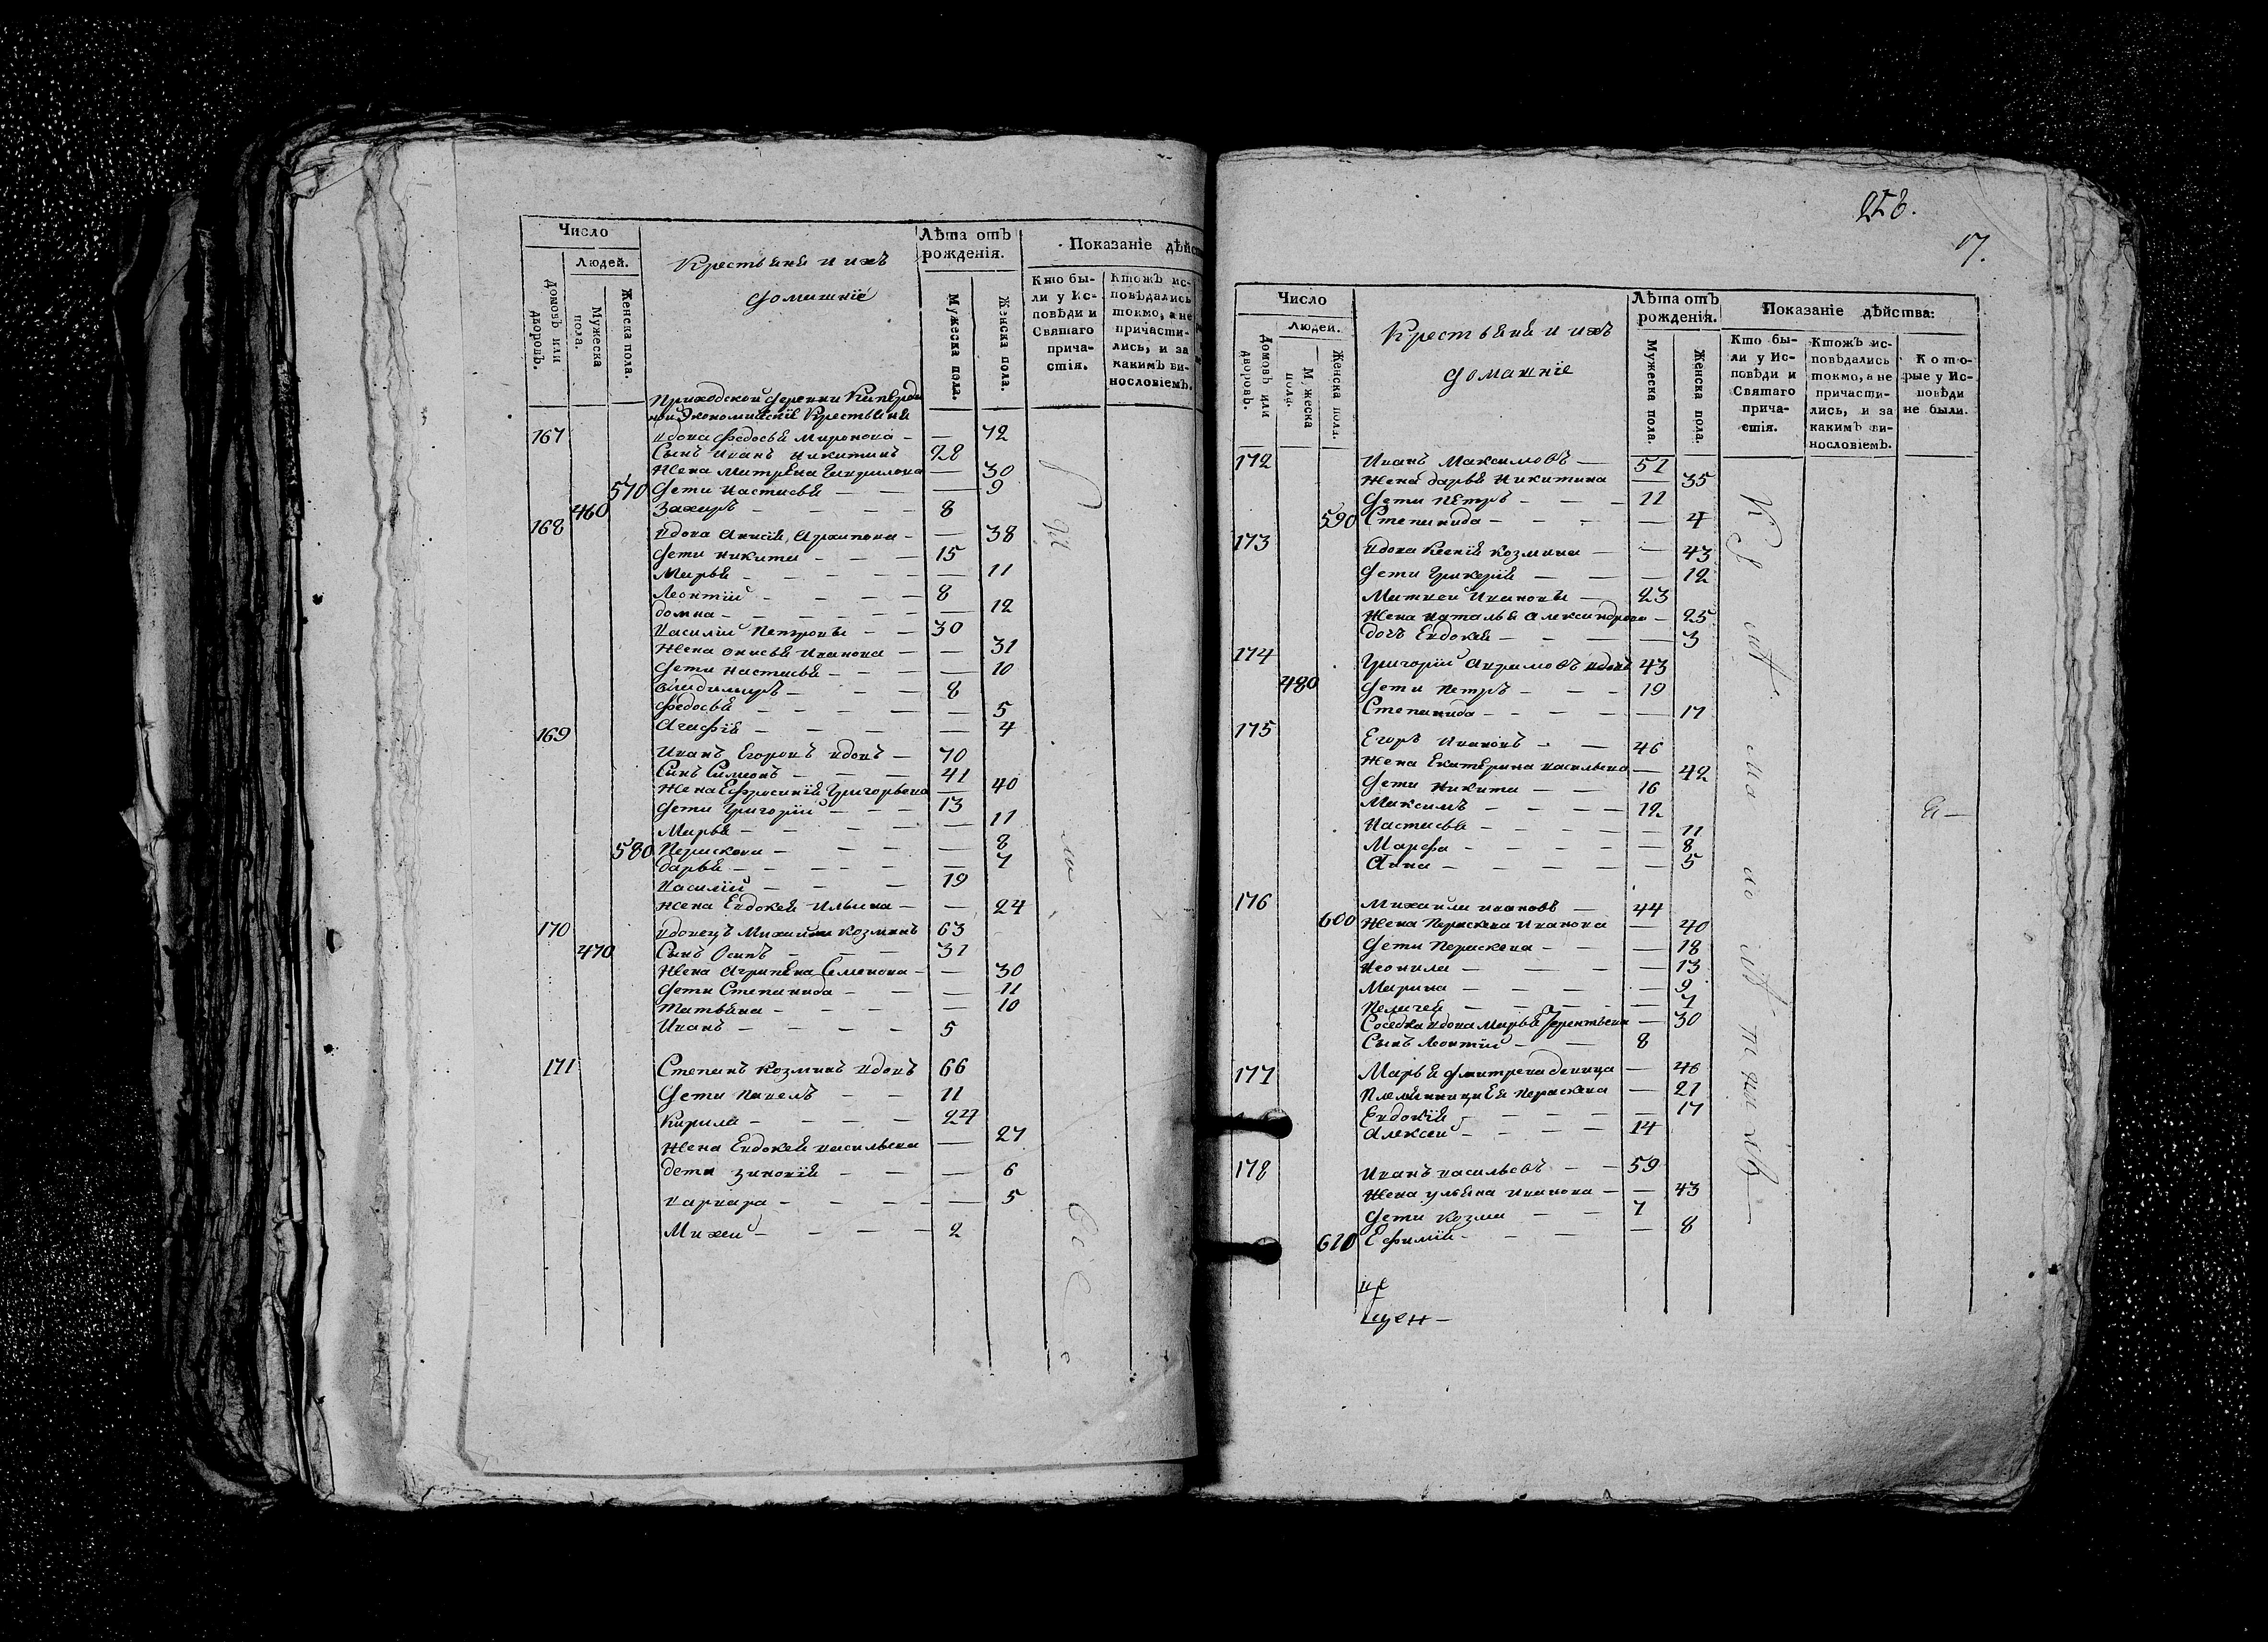 Число
Людей.
Домовъ или дворовъ.
Мужеска пола.
Женска пола.
Крестьяня и ихъ
домашніе
Лѣта отъ рожденія.
Мужеска пола.
Женска пола.
Показаніе дѣйс
Кто бы-
ли у Ис-
повѣди и
Святаго
прича-
стія.
Ктожъ ис-
повѣдались
токмо, а не
причасти-
лись, и за
какимъ ви-
нословіемъ.
Приходской деревни
Экономическіе Крестьяня
167 вдова Федосья Миронова — — 72
Сынъ Иванъ Никитинъ 28
Жена Матрена Гаврилова — 30
570 дети Настасья — — — 9
460 Захаръ — — — — 8
168 вдова Анисія Архипова — — 38
дети Никита — — — 15
Марья — — — — — 11
Леонтій — — — — 8
домна — — — — — 12
Василій Петровъ — — 30
Жена Анисья Иванова — — 31
дети Настасья — — — — 10
Владимиръ — — — 8
Федосья — — — — — 5
Агафія — — — — 4
169 Иванъ Егоровъ вдовъ — 70
Сынъ Симеонъ — — — 41
Жена Ефросинія Григорьева — 40
дети Григорій — — — 13
Марья — — — — — 11
580 Параскева — — — — — 8
дарья — — — — — — 7
Василій — — — 19
Жена Евдокея Ильина — — 24
170 вдовецъ Михаила Козминъ 63
470 Сынъ Осипъ — — — 31
Жена Агрипена Семенова — — 30
дети Степанида — — — 11
Татьяна — — — — — 10
Иванъ — — — — 5
171 Степанъ Козминъ вдовъ 66
дети Павелъ — — 11
Кирила — — — — 24
Жена Евдокея Васильева — 27
дети Зиновія — — — — 6
Варвара — — — — — 5
Михей — — — — 2
17.
Число
Людей.
Домовъ или дворовъ.
Мужеска пола.
Женска пола.
Крестьяня и ихъ
домашніе
Лѣта отъ рожденія.
Мужеска пола.
Женска пола.
Показаніе дѣйства:
Кто бы-
ли у Ис-
повѣди и
Святаго
прича-
стія.
Ктожъ ис-
повѣдались
токмо, а не
причасти-
лись, и за
какимъ ви-
нословіемъ.
Кото-
рые у Ис-
повѣди
не были.
172 Иванъ Максимовъ — 51
Жена дарья Никитина — 35
дети Петръ — — — 11
590 Степанида — — — — 4
173 вдова Ксенія Козмина — — 43
дети Гликерія — — — 12
Матвеи Ивановъ — 23
Жена Наталья Александрова — 25
дочь Евдокея — — — — 3
174 Григорій вдовъ 43
480 дети Петръ — — — 19
Степанида — — — — — 17
175 Егоръ Ивановъ — — 46
Жена Екатерина Васильева — 42
дети Никита — — 16
Максимъ — — — — 12
Настасья — — — — — 11
Марфа — — — — — 8
Анна — — — — — 5
176 Михаила Ивановъ — 44
600 Жена Параскева Иванова — 40
дети Параскева — — — 18
Неонила — — — — 13
Марина — — — — — 9
Пелагея — — — — — 7
Соседка вдова Марья Терентьева — 30
Сынъ Леонтій — — 8
177 Марья дмитрева девица — 46
Племянницы Ея Параскева — 21
Евдокія — — — — — 17
Алексеи — — — — 14
178 Иванъ Васильевъ — — 59
Жена Ульяна Иванова — — 43
дети Козма — — 7
610 Ефимія — — — — 8